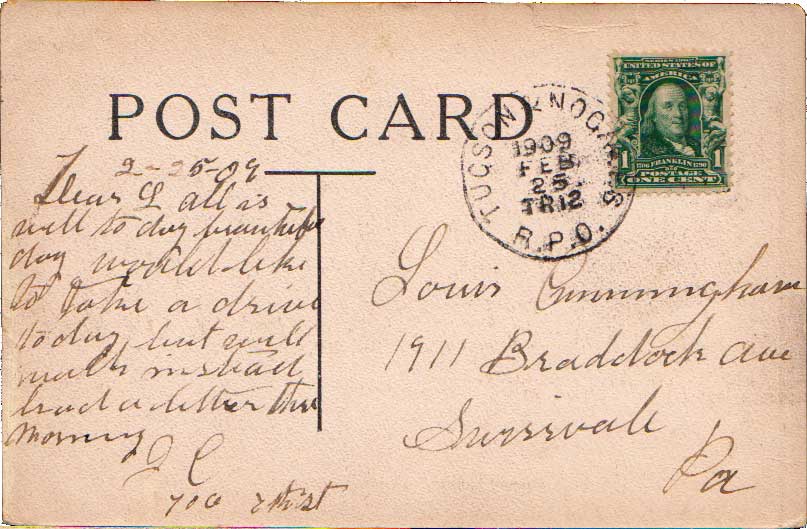 POST CARD
TUCSON & NOGALES
1909
FEB
25
TR12
R.P.O.
SERIES 1902
UNITED STATES OF
AMERICA
1 1706 FRANKLIN 1790 1
POSTAGE
ONE CENT
2-25-09
Dear L all is
well to day beautiful
day would like
to take a drive
to day but will
walk instead
had a letter this
morning
J C
700 7th st
Louis Cunningham
1911 Braddock Ave
Swissvale
Pa